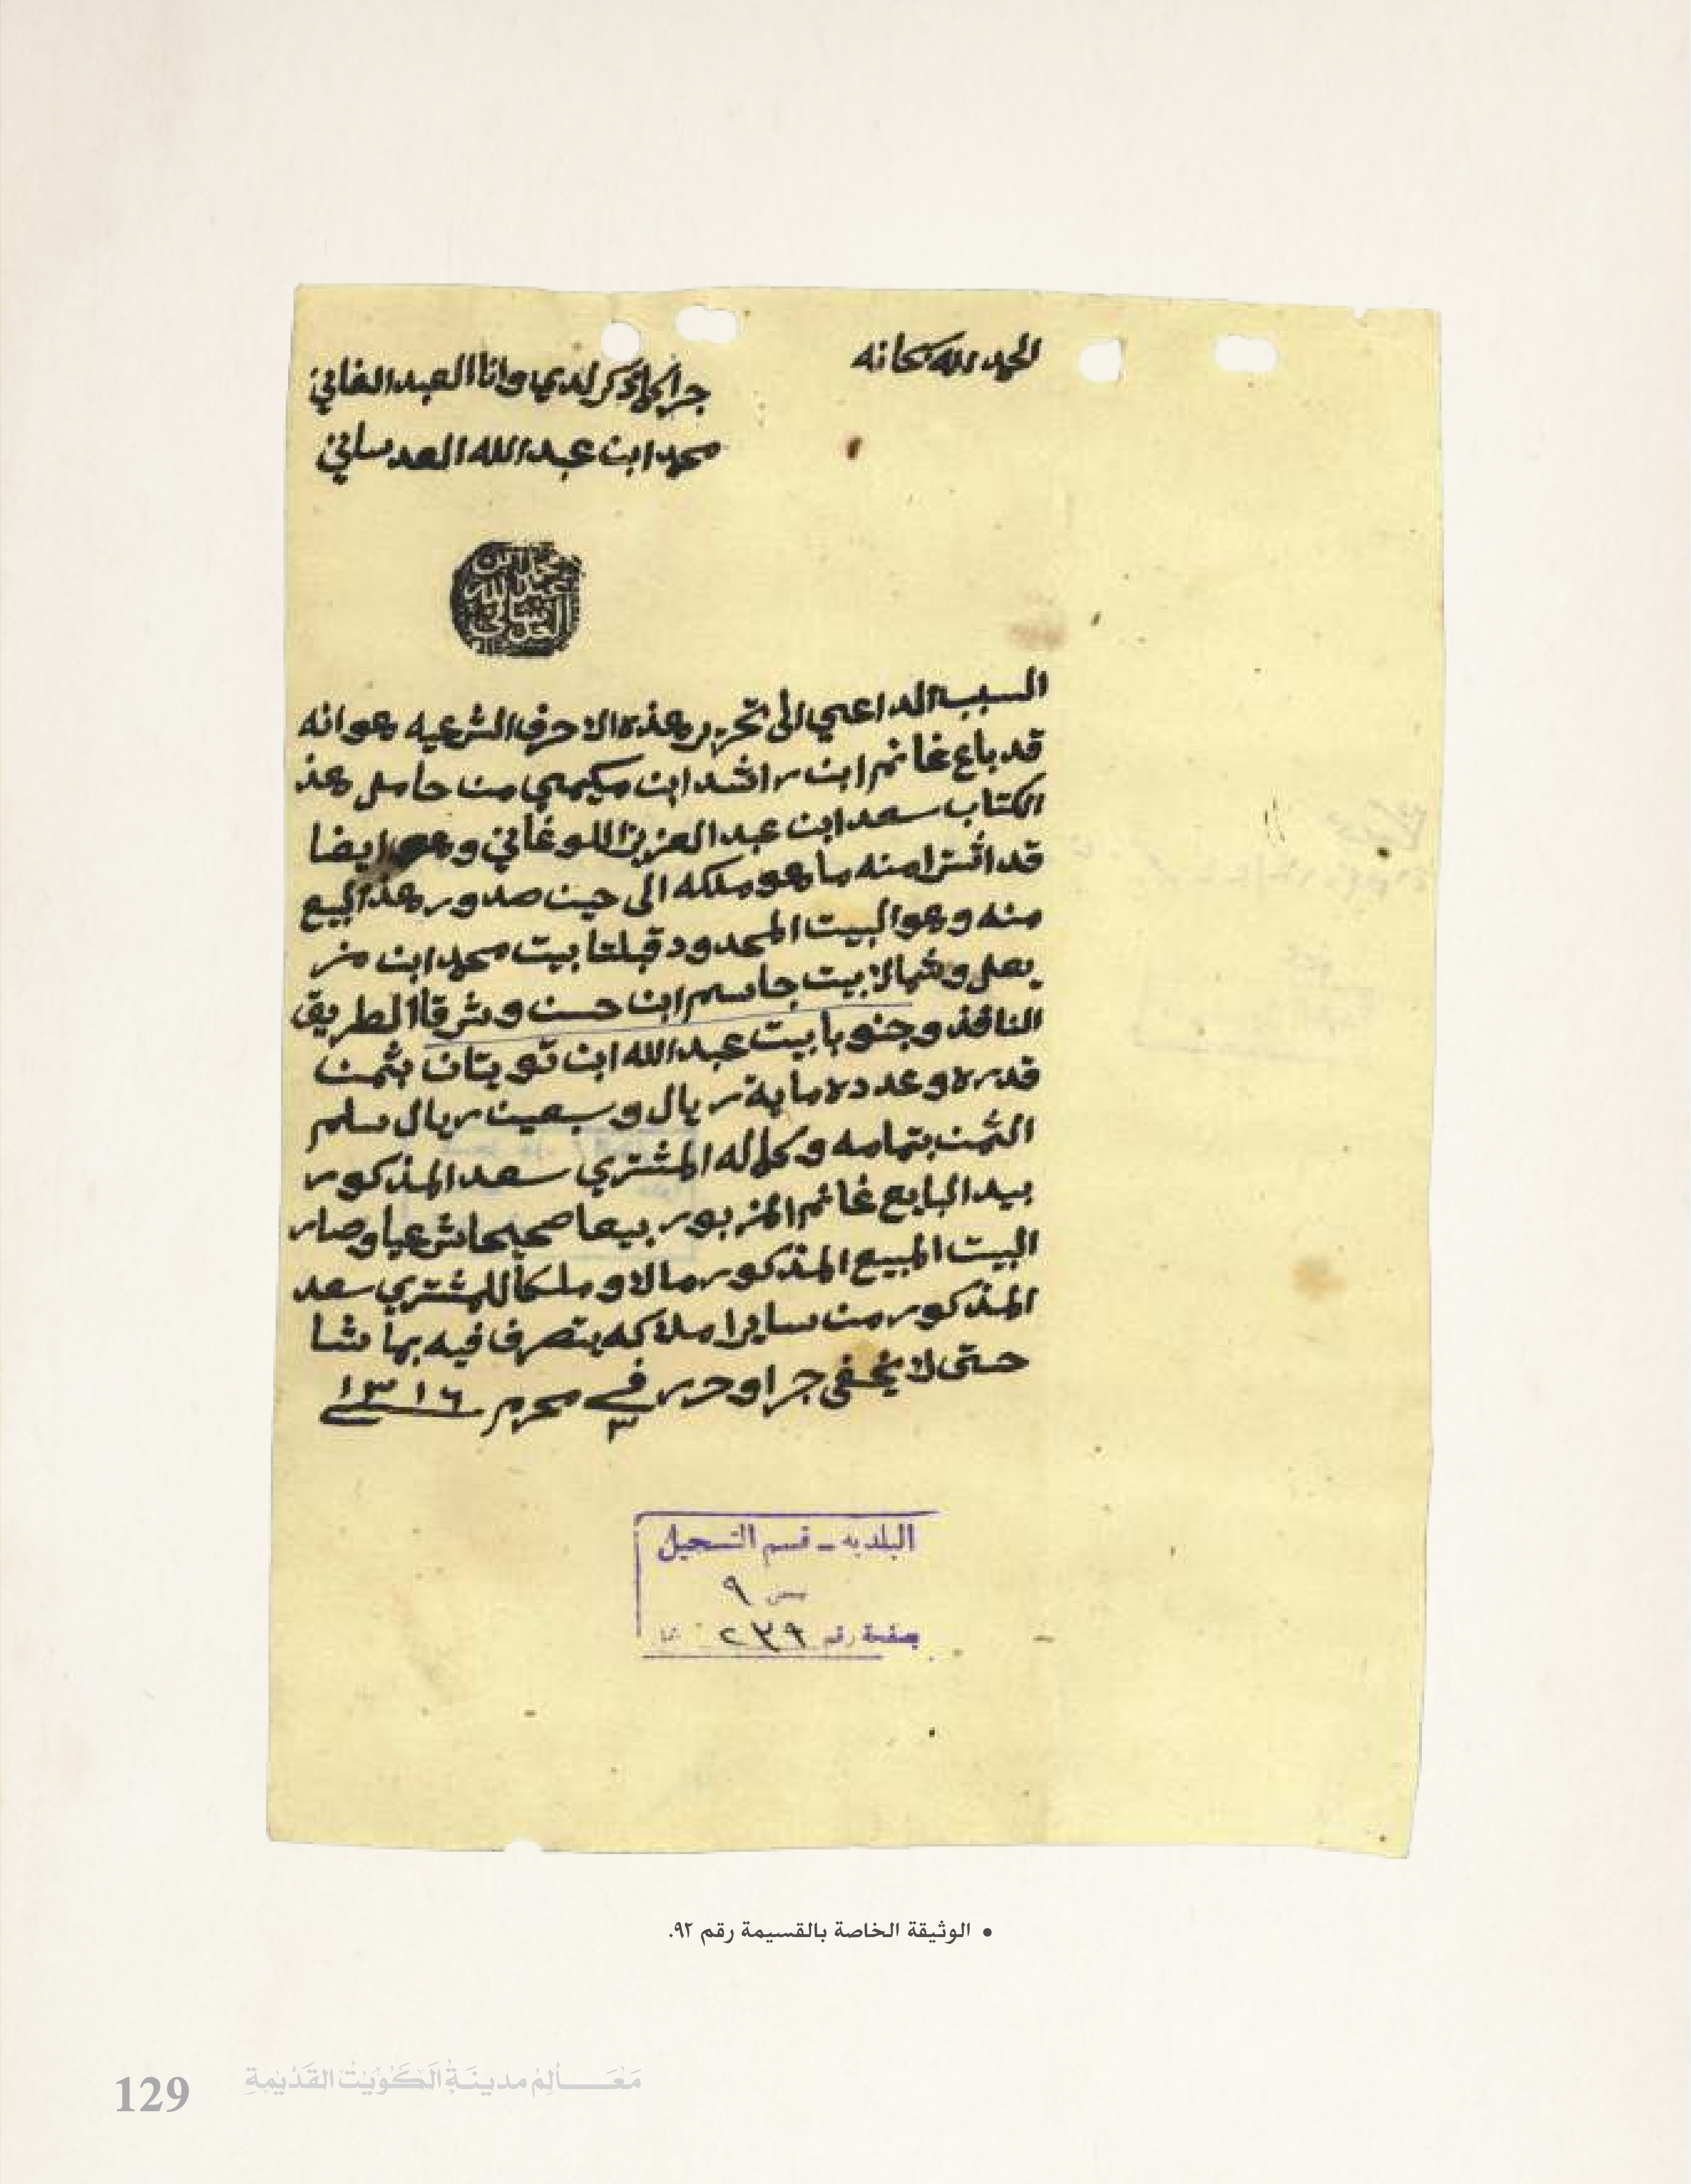 الحمد لله سبحانه
جرا كما ذكر لدي وانا العبد الفاني
محمد ابن عبد الله العدساني
السبب الداعي الى تحرير هذه الاحرف الشرعيه هو انه
قد باع غانم ابن راشد ابن من حامل هذ
الكتاب سعد ابن عبد العزيز اللوغاني وهو ايضا
قد اشترا منه ما هو ملكه الى حين صدور هذ البيع
منه وهو البيت المحدود قبلتا بيت محمد ابن مز
يعل وشمالا بيت جاسم ابن حسن وشرقا الطريق
النافذ وجنوبا بيت عبد الله ابن بثمن
قدره وعدده ماية ريال وسبعين ريال سلم
الثمن بتمامه وكماله المشتري سعد المذكور
بيد البايع غانم المزبور بيعا صحيحا شرعيا وصار
البيت المبيع المذكور مالا وملكا للمشتري سعد
المذكور من ساير املاكه يتصرف فيه بما شا
حتى لا يخفى جرا وحرر في ٣ محرم ١٣١٦
البلديه - قسم التسجيل
٩
صفحة رقم ٢٣٩
• الوثيقة الخاصة بالقسيمة رقم ٩٢.
129 معالم مدينة الكويت القديمة